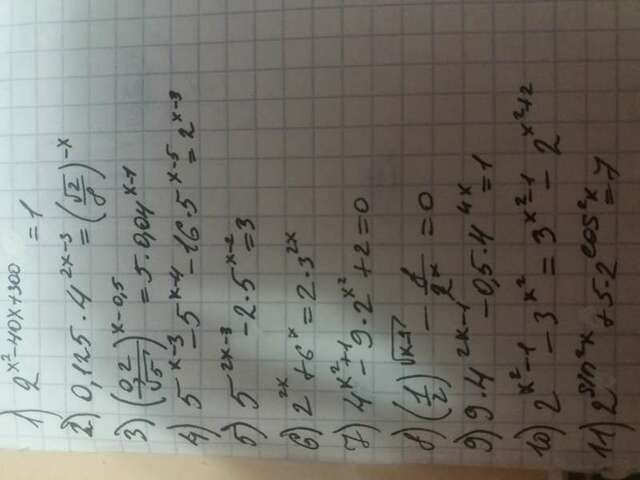 1) 2^(x²-40x+300) = 1
2) 0,125 · 4^(2x-3) = (√2/8)^(-x)
3) (0,2/√5)^(x-0,5) = 5 · 0,04^(x-1)
4) 5^(x-3) - 5^(x-4) - 16 · 5^(x-5) = 2^(x-3)
5) 5^(2x-3) - 2 · 5^(x-2) = 3
6) 2^(2x) + 6^x = 2 · 3^(2x)
7) 4^(x²+1) - 9 · 2^(x²) + 2 = 0
8) (1/2)^(√(x-1)) - 8/2^x = 0
9) 9 · 4^(2x-1) - 0,5 · 4^(4x) = 1
10) 2^(x²-1) - 3^(x²) = 3^(x²-1) - 2^(x²+2)
11) 2^(sin²x) + 5 · 2^(cos²x) = 7